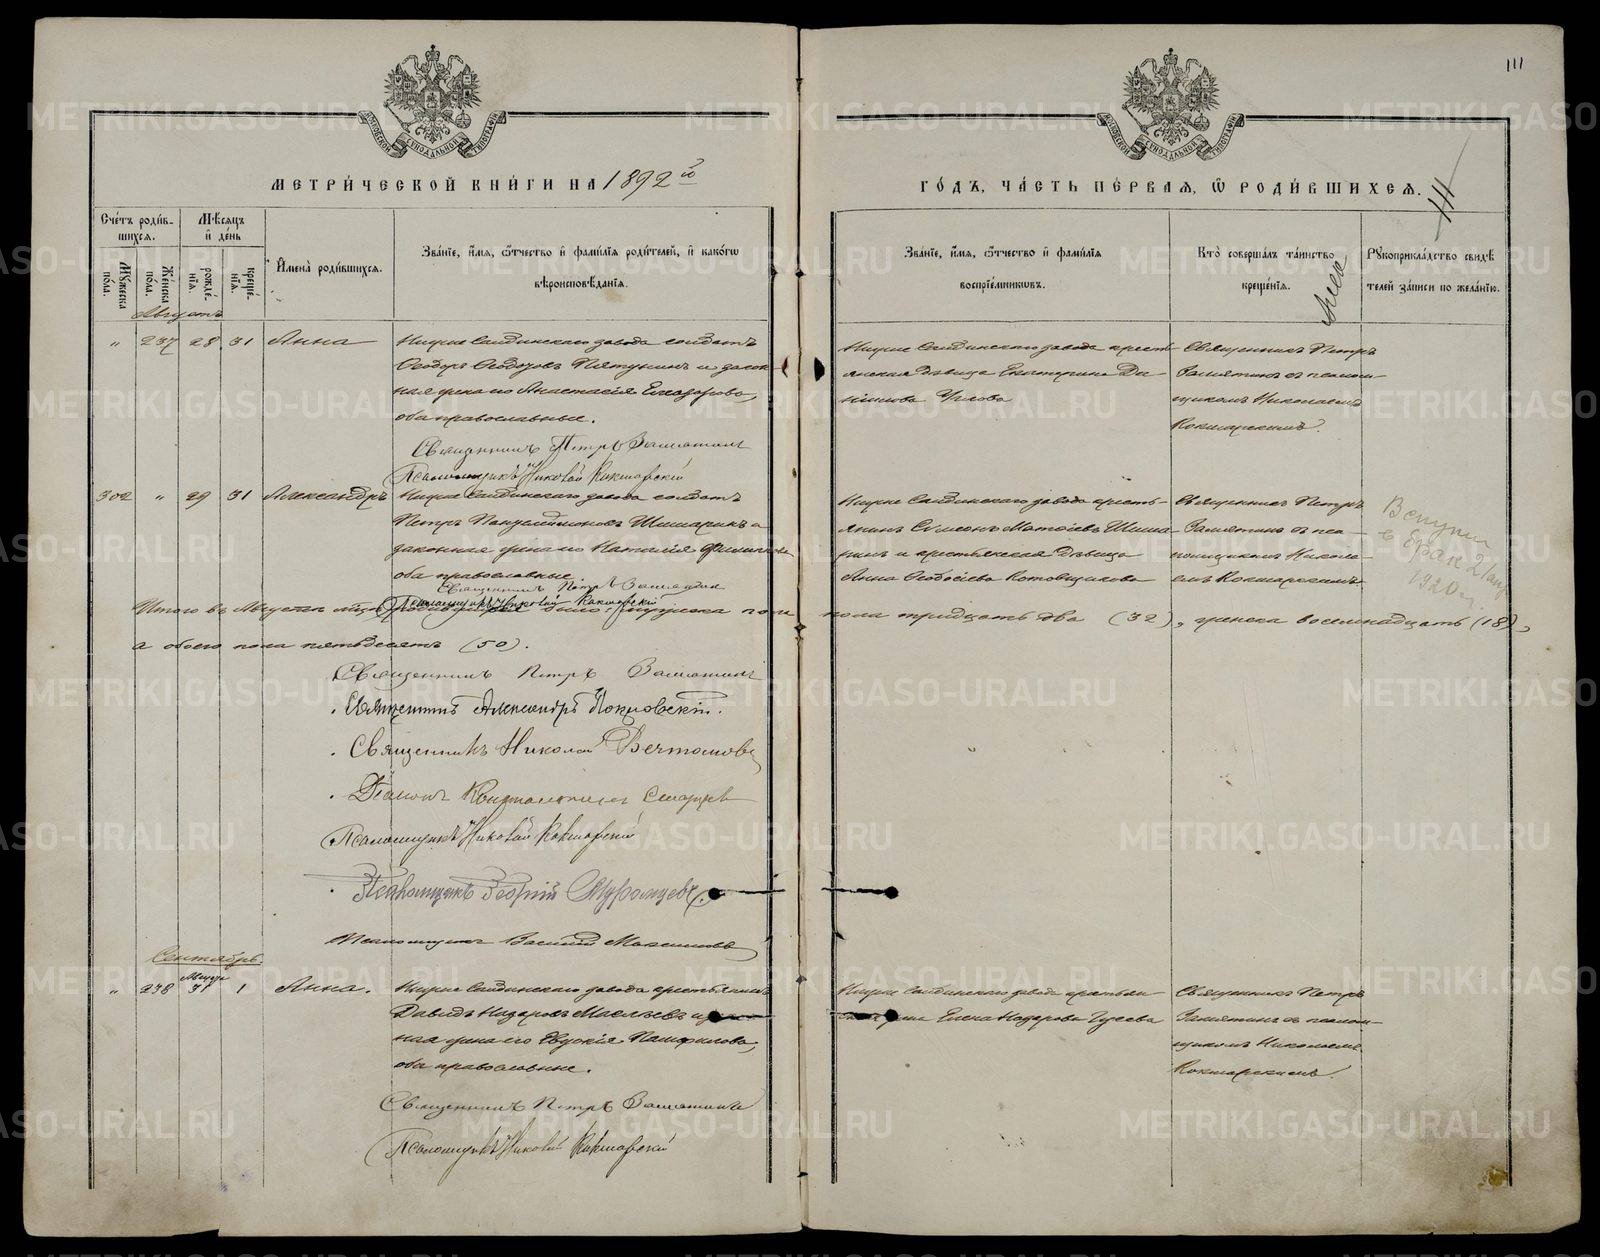 111
МЕТРИ́ЧЕСКОЙ КНИ́ГИ НА 1892й
ГО́ДЪ, ЧА́СТЬ ПЕ́РВАЯ, Ѿ РОДИ́ВШИХСЯ.
111
Сче́тъ роди́в-
шихся.
Мѣ́сяцъ
и де́нь
Мꙋ́жеска по́ла.
Же́нска по́ла.
рожде́-
нїя.
креще́-
нїя.
Имена̀ роди́вшихся.
Зва́нїе, и́мя, ѻ́тчество и фами́лїя роди́телей, и како́гѡ
вѣроисповѣ́данїя.
Зва́нїе, и́мя, ѻ́тчество и фами́лїя
воспрїе́мникѡвъ.
Кто̀ соверша́лъ та́инство
креще́нїя.
Рꙋкоприкла́дство свидѣ́
телей за́писи по жела́нїю.
Августъ
" 237 28 31 Анна
Нижне Салдинскаго завода солдатъ
Ѳеодоръ Ѳеодоровъ Пятунинъ и закон
ная жена его Анастасія
оба православные.
Священникъ Петръ Замятинъ
Псаломщикъ Николай Кокшарскій
Нижне Салдинскаго завода кресть
янская дѣвица Екатерина Да-
нилова
Священникъ Петръ
Замятинъ съ псалом-
щикомъ Николаемъ
Кокшарскимъ.
302 " 29 31 Александръ
Нижне Салдинскаго завода солдатъ
Петръ Пантелеимоновъ Шишаринъ и
законная жена его Наталія Филиппова
оба православные
Священникъ Петръ Замятинъ
Псаломщикъ Николай Кокшарскій
Нижне Салдинскаго завода кресть-
янинъ Симеонъ Матѳіевъ Шиша
ринъ и крестьянская дѣвица
Анна Ѳеодосіева Котовщикова
Священникъ Петръ
Замятинъ съ пса-
ломщикомъ Никола-
емъ Кокшарскимъ
Вступил
в брак 2/
1920 г.
Итого въ Августѣ м-цѣ родившихся было: мужеска пола
пола тридцать два (32), женска восемнадцать (18),
а обоего пола пятьдесятъ (50).
Священникъ Петръ Замятинъ
Священникъ Александръ Покровскій.
Священникъ Николай Вечтомовъ
Діаконъ Константинъ
Псаломщикъ Николай Кокшарскій
Псаломщикъ Георгій Муромцевъ.
Псаломщикъ Василій Максимовъ
Сентябрь.
Августъ
" 238 31 1 Анна.
Нижне Салдинскаго завода крестьянинъ
Давидъ Назаровъ и
ная жена его Евдокія Памфилова,
оба православные.
Священникъ Петръ Замятинъ
Псаломщикъ Николай Кокшарскій
Нижне Салдинскаго завода крестьян-
Елена Назарова Гусева
Священникъ Петръ
Замятинъ съ псалом-
щикомъ Николаемъ
Кокшарскимъ.
METRIKI.GASO-URAL.RU